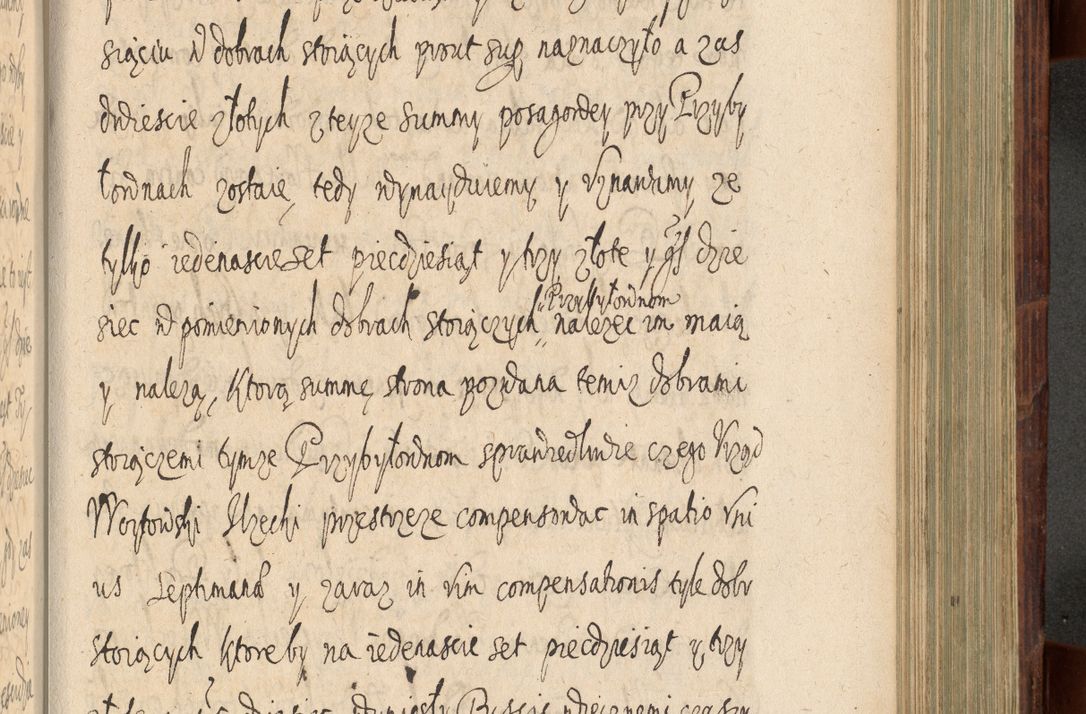 siąciu w dobrach stoiących prout sup naznaczyło a zas
dwieście złotych z teyze summy posagowey przy Przyby
łownach zostaie, tedy wynayduiemy y Uznawamy ze
tylko iedenascieset piecdziesiąt y trzy złote y gł dzie
siec w pomienionych dobrach stoiączych Przybyłownom nalezec im maią
y nalezą, Ktorą summę strona pozwana temisz dobrami
stoiączemi tymze Przybyłownom sprawiedliwie czego Urząd
Woytowski Ilzecki przestrzeze compensowac in spatio Uni
us Septimanæ y zaraz in vim compensationis tyle dobr
stoiących Ktore by na iedenascie set piecdziesiąt y trzy